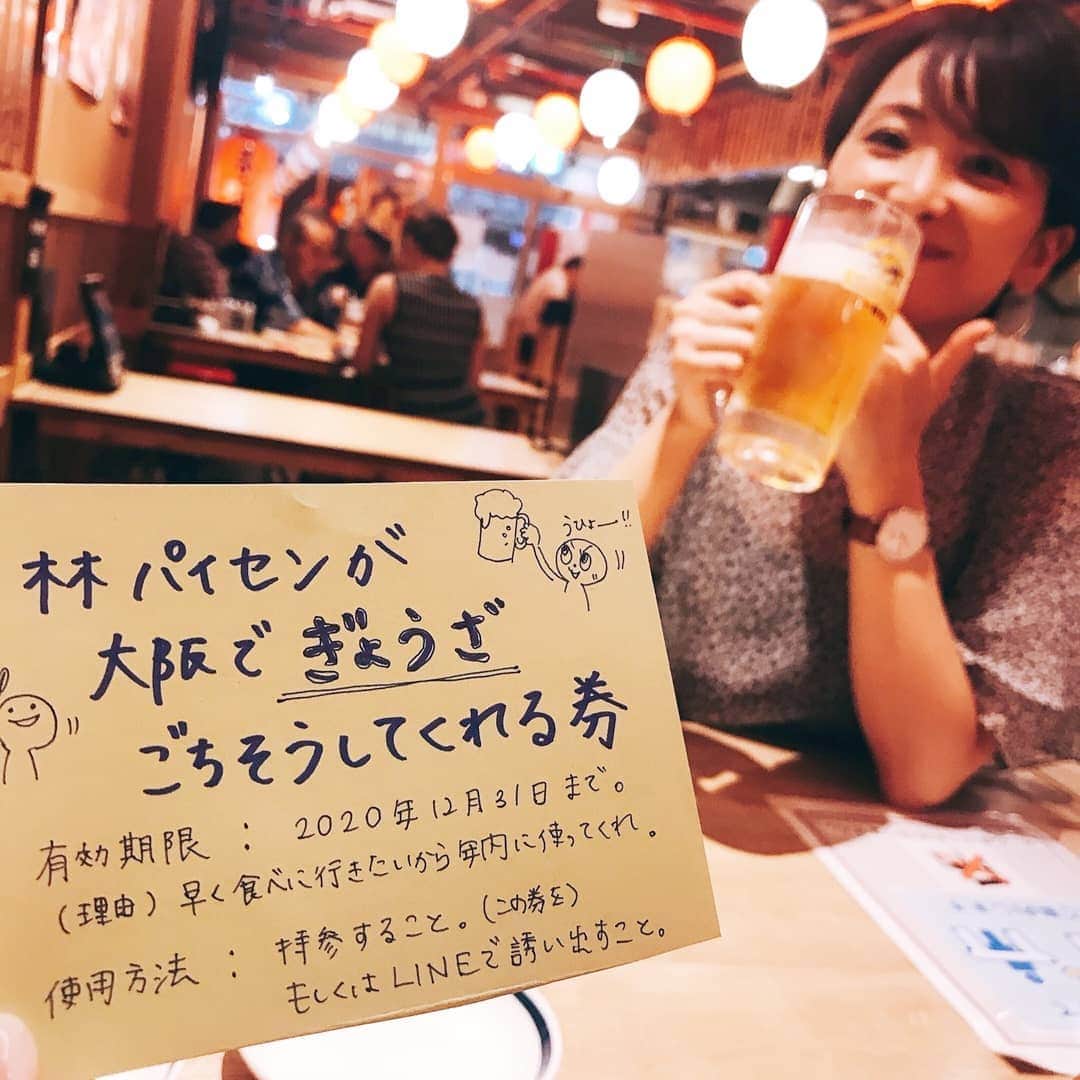 うひょー!!
林パイセンが
大阪でぎょうざ
ごちそうしてくれる券
有効期限：2020年12月31日まで。
(理由)早く食べに行きたいから年内に使ってくれ。
使用方法：持参すること。(この券を)
もしくはLINEで誘い出すこと。